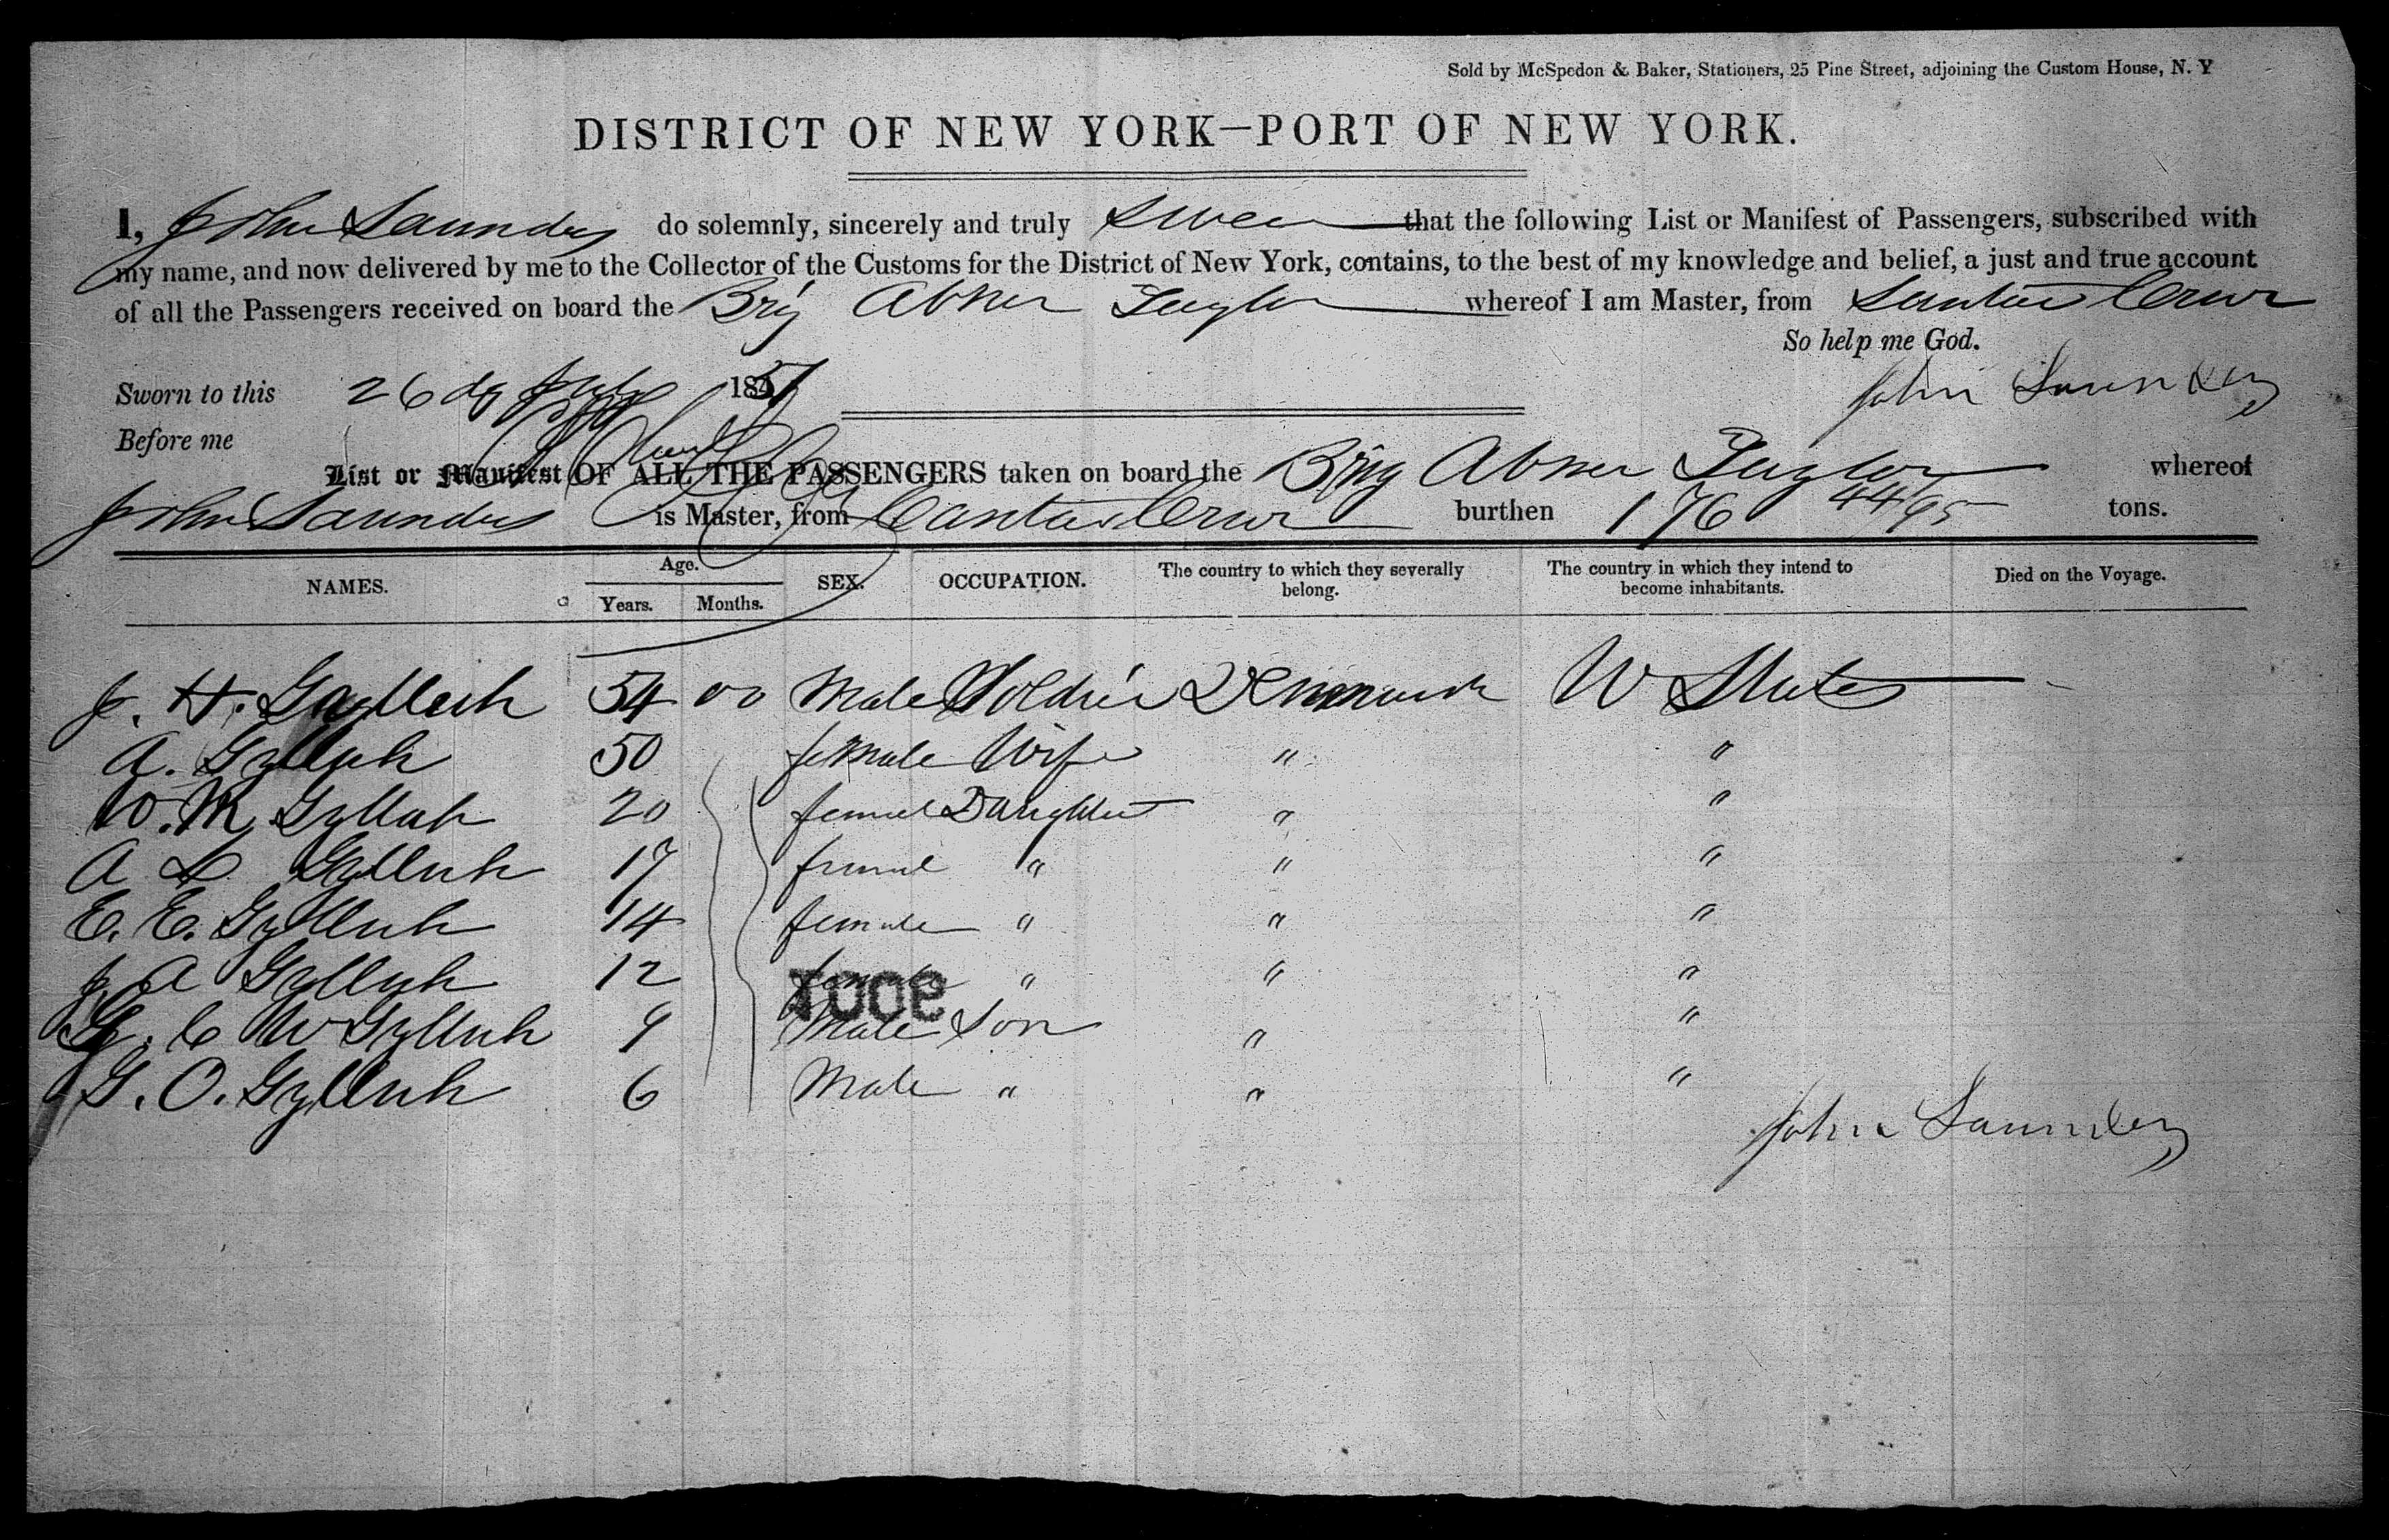 Sold by McSpedon & Baker, Stationers, 25 Pine Street, adjoining the Custom House, N. Y
DISTRICT OF NEW YORK—PORT OF NEW YORK.
I, John Saunders do solemnly, sincerely and truly swear that the following List or Manifest of Passengers, subscribed with
my name, and now delivered by me to the Collector of the Customs for the District of New York, contains, to the best of my knowledge and belief, a just and true account
of all the Passengers received on board the Brig Abner Taylor whereof I am Master, from Santa Cruz
So help me God.
Sworn to this 26 1851 John Saunders
Before me
List or Manifest OF ALL THE PASSENGERS taken on board the Brig Abner Taylor whereof
John Saunders is Master, from Santa Cruz burthen 176 44/95 tons.
NAMES. Age. Years. Months. SEX. OCCUPATION. The country to which they severally belong. The country in which they intend to become inhabitants. Died on the Voyage.
J. H. Gyllich 54 00 Male Soldier Denmark U States
A. Gyllich 50 female Wife " "
W. M. Gyllich 20 femal Daughter " "
A L Gyllich 17 femal " " "
E. E. Gyllich 14 female " " "
J. A Gyllich 12 female " " "
C W Gyllich 9 Male Son " "
G. O. Gyllich 6 Male " " "
John Saunders